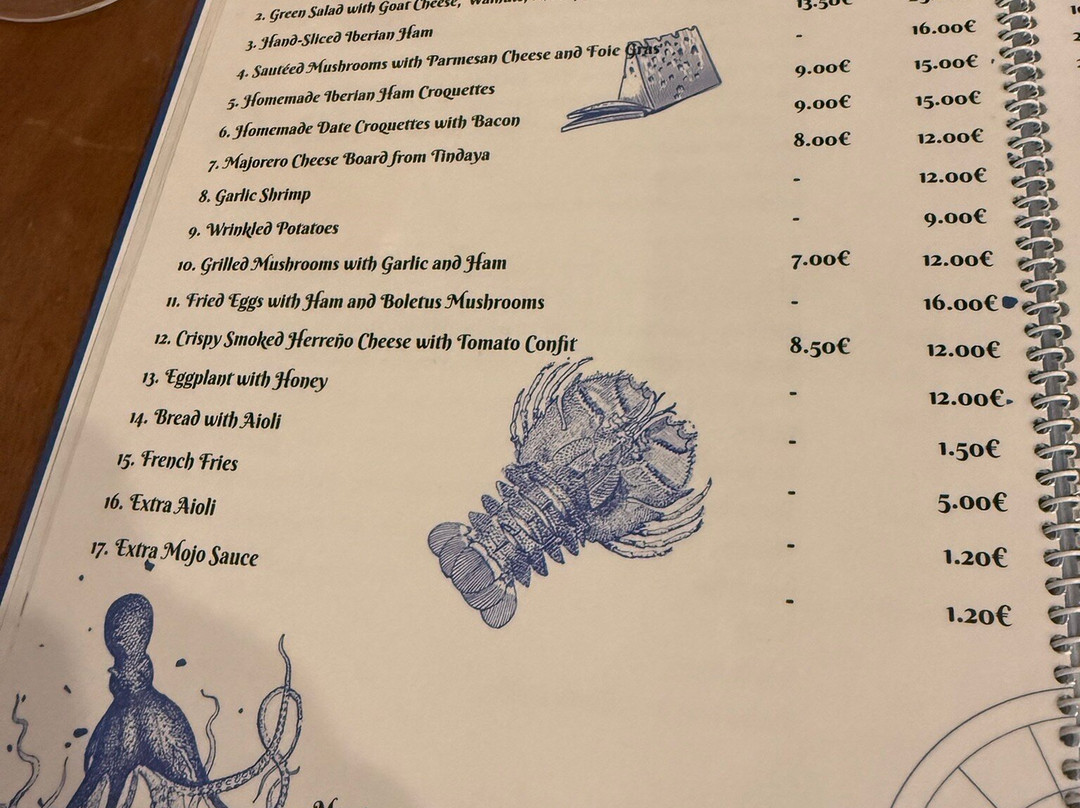 2. Green Salad with Goat Cheese,
3. Hand-Sliced Iberian Ham 13.50€
4. Sautéed Mushrooms with Parmesan Cheese and Foie Gras - 16.00€
5. Homemade Iberian Ham Croquettes 9.00€ 15.00€
6. Homemade Date Croquettes with Bacon 9.00€ 15.00€
7. Majorero Cheese Board from Tindaya 8.00€ 12.00€
8. Garlic Shrimp - 12.00€
9. Wrinkled Potatoes - 9.00€
10. Grilled Mushrooms with Garlic and Ham 7.00€ 12.00€
11. Fried Eggs with Ham and Boletus Mushrooms - 16.00€
12. Crispy Smoked Herreño Cheese with Tomato Confit 8.50€ 12.00€
13. Eggplant with Honey - 12.00€
14. Bread with Aioli - 1.50€
15. French Fries - 5.00€
16. Extra Aioli - 1.20€
17. Extra Mojo Sauce - 1.20€